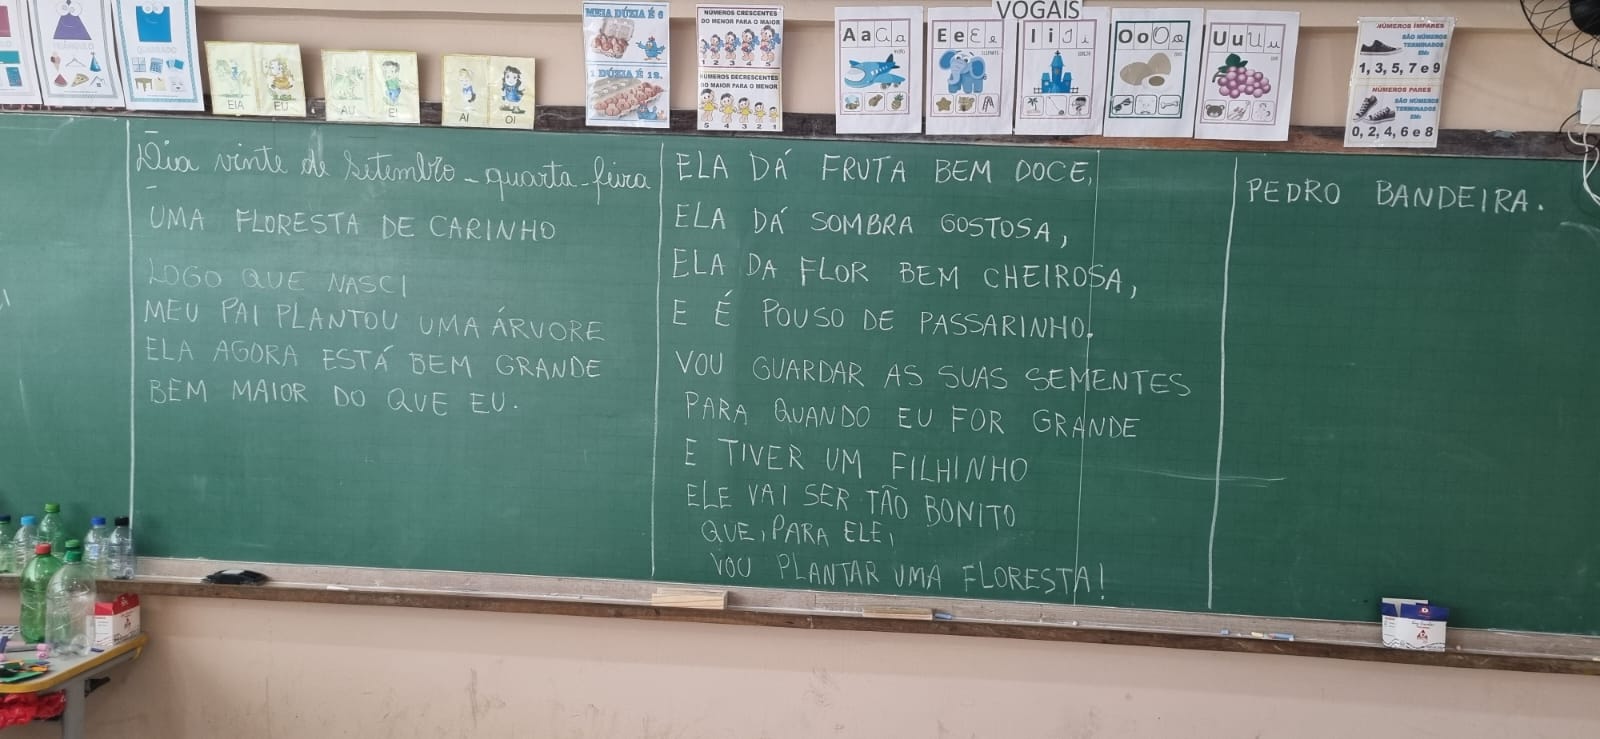 TRIÂNGULO
QUADRADO
EIA
EU
AU
EI
AI
OI
MEIA DÚZIA É 6
1 DÚZIA É 12.
NÚMEROS CRESCENTES
DO MENOR PARA O MAIOR
1 2 3 4 5
NÚMEROS DECRESCENTES
DO MAIOR PARA O MENOR
5 4 3 2 1
VOGAIS
A a
E e
I i
O o
U u
NÚMEROS ÍMPARES
SÃO NÚMEROS
TERMINADOS
EM:
1, 3, 5, 7 e 9
NÚMEROS PARES
SÃO NÚMEROS
TERMINADOS
EM:
0, 2, 4, 6 e 8
Dia vinte de Setembro - quarta-feira
UMA FLORESTA DE CARINHO
LOGO QUE NASCI
MEU PAI PLANTOU UMA ÁRVORE
ELA AGORA ESTÁ BEM GRANDE
BEM MAIOR DO QUE EU.
ELA DÁ FRUTA BEM DOCE,
ELA DÁ SOMBRA GOSTOSA,
ELA DA FLOR BEM CHEIROSA,
E É POUSO DE PASSARINHO.
VOU GUARDAR AS SUAS SEMENTES
PARA QUANDO EU FOR GRANDE
E TIVER UM FILHINHO
ELE VAI SER TÃO BONITO
QUE, PARA ELE,
VOU PLANTAR UMA FLORESTA!
PEDRO BANDEIRA.